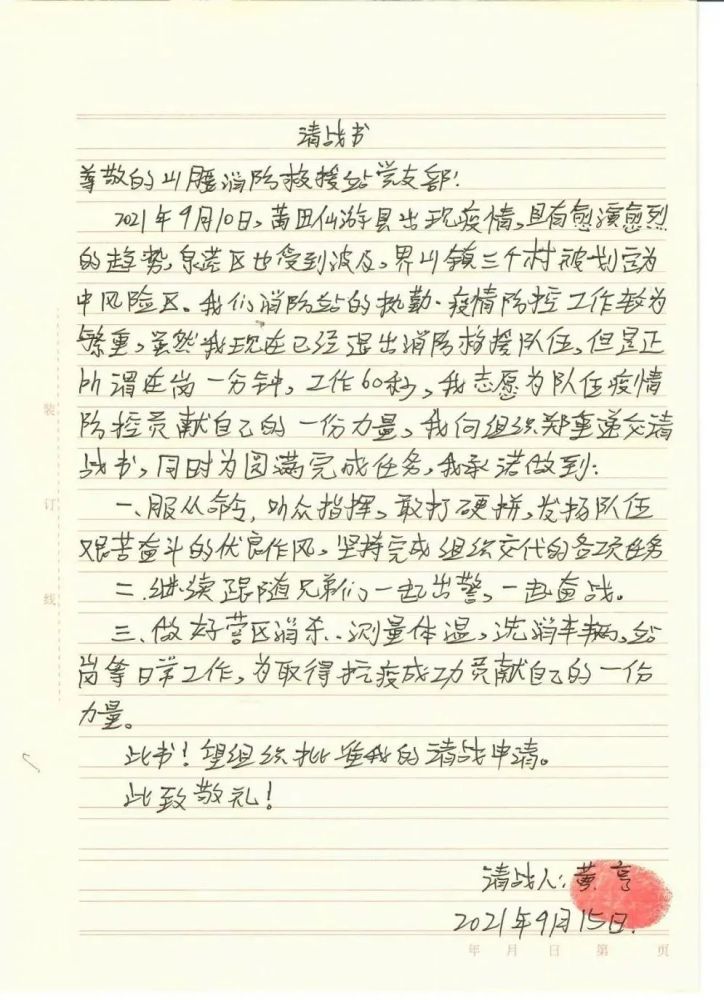 请战书
尊敬的山腰消防救援站党支部！
2021年9月10日，莆田仙游县出现疫情，且有愈演愈烈
的趋势，泉港区也受到波及，界山镇三个村被划定为
中风险区。我们消防站的执勤、疫情防控工作较为
繁重，虽然我现在已经退出消防救援队伍，但是正
所谓在岗一分钟，工作60秒，我志愿为队伍疫情
防控贡献自己的一份力量，我向组织郑重递交请
战书，同时为圆满完成任务，我承诺做到：
一、服从命令，听众指挥，敢打硬拼，发扬队伍
艰苦奋斗的优良作风，坚持完成组织交代的各项任务
二、继续跟随兄弟们一起出警，一起奋战。
三、做好营区消杀、测量体温，洗消车辆，站
岗等日常工作，为取得抗疫成功贡献自己的一份
力量。
此书！望组织批准我的请战申请。
此致敬礼！
请战人：黄亨
2021年9月15日.
年 月 日 第 页
装
订
线